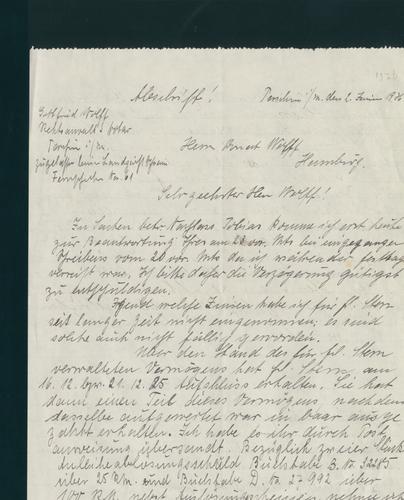 1926
Abschrift!
Parchim i/m. den 2. Juni 1926
Gottfried Wolff
Rechtsanwalt u. Notar
Parchim i/m.
zugelassen beim Landgericht Schwerin
Fernsprecher No. 61
Herrn Ernst Wolff,
Hamburg.
Sehr geehrter Herr Wolff!
In Sachen betr. Nachlass Tobias komme ich erst heute
zur Beantwortung Ihres am vor. Mts bei eingegangenen
Schreibens vom 20 vor. Mts da ich während der festtage
verreist war. Ich bitte daher die Verzögerung gütigst
zu entschuldigen.
Irgend welche Zinsen habe ich für fl. Stern
seit langer Zeit nicht eingenommen; es sind
solche auch nicht fällig geworden.
Über den Stand des für fl. Stern
verwalteten Vermögens hat fl. Stern am
16. 12. bzw. 21. 12. 25 Aufschluss erhalten. Sie hat
dann einen Teil dieses Vermögens nachdem
dasselbe aufgewertet war in baar ausge
zahlt erhalten. Ich habe es ihr durch Post
anweisung übersandt. Bezüglich zweier Stück
Anleiheablösungsschuld Buchstabe B. No. 32285
über 25 R/m. und Buchstabe D. No. 27992 über
100 R.M. nebst Auslosungsscheinen nehme